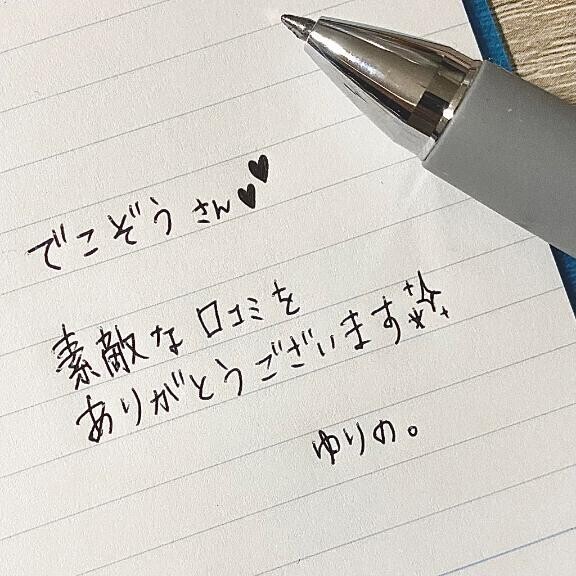 でこぞうさん♥♥
素敵な口コミを
ありがとうございます✨
ゆりの。